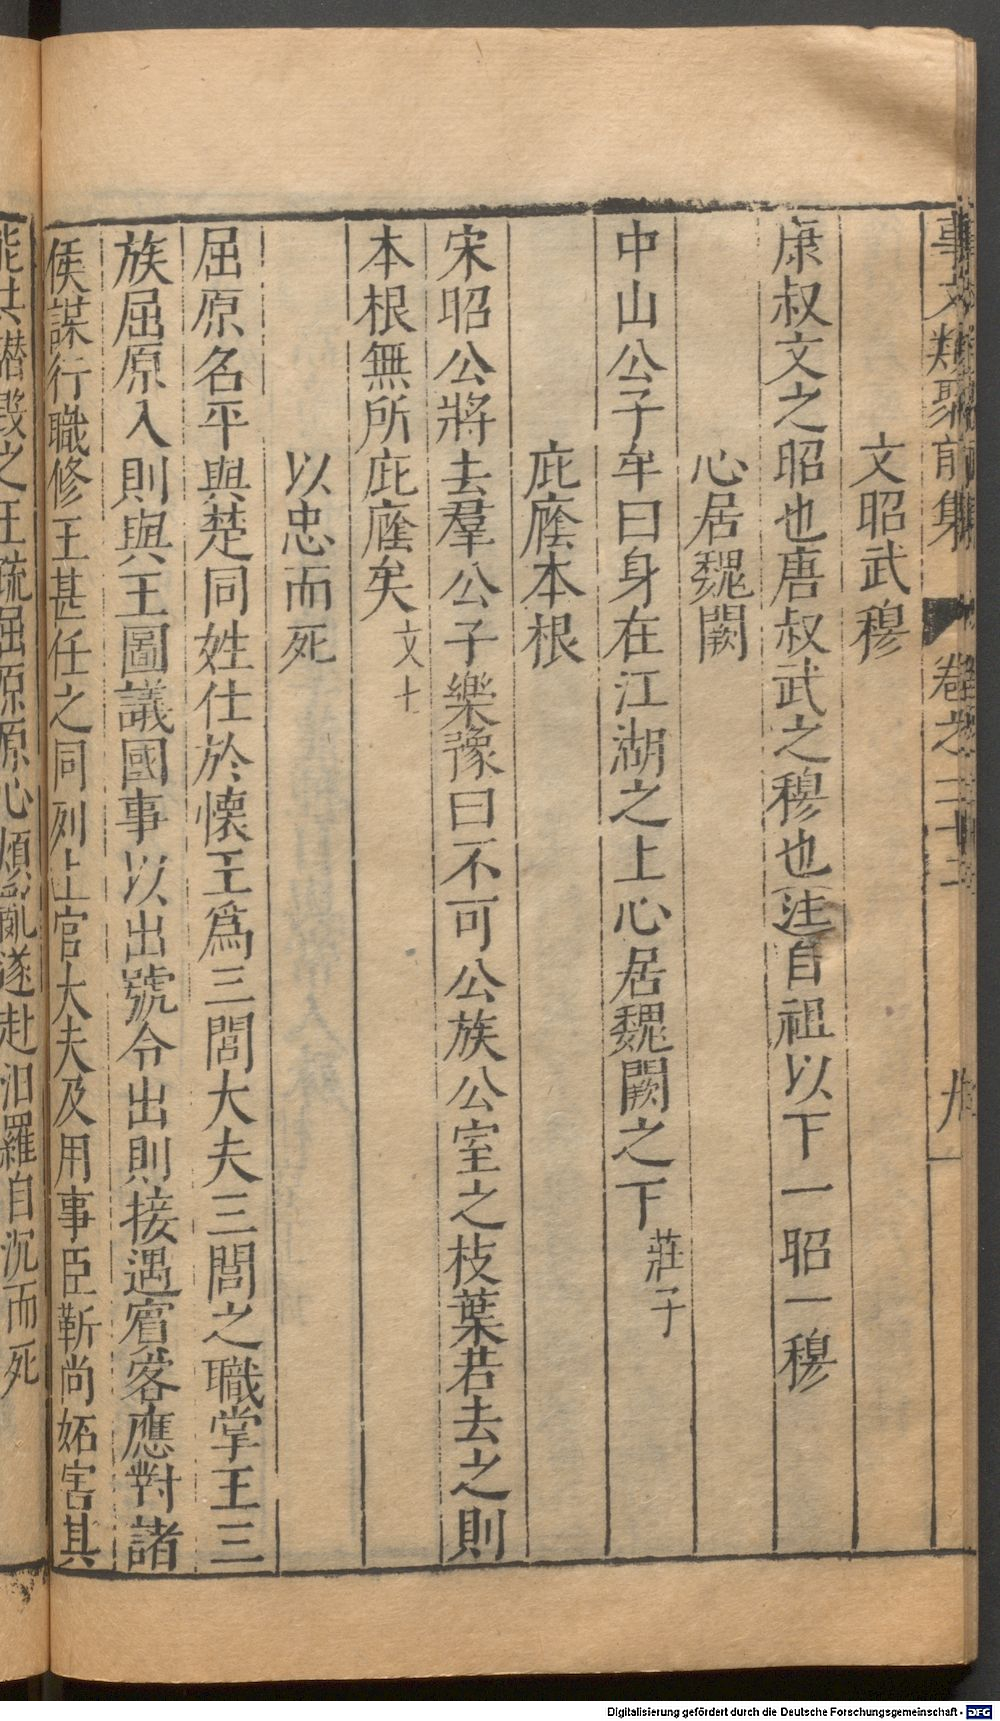 事文類聚前集 卷之二十二 九
文昭武穆
康叔文之昭也唐叔武之穆也注自祖以下一昭一穆
心居魏闕
中山公子牟曰身在江湖之上心居魏闕之下莊子
庇廕本根
宋昭公將去羣公子樂豫曰不可公族公室之枝葉若去之則
本根無所庇廕矣文十
以忠而死
屈原名平與楚同姓仕於懷王爲三閭大夫三閭之職掌王三
族屈原入則與王圖議國事以出號令出則接遇賓客應對諸
侯謀行職修王甚任之同列上官大夫及用事臣靳尚妬害其
能共譖毀之王疏屈原原心煩亂遂赴汨羅自沉而死
Digitalisierung gefördert durch die Deutsche Forschungsgemeinschaft - DFG